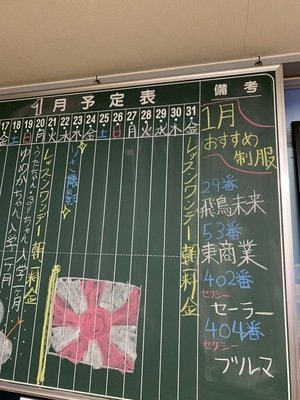 1月予定表
備考
17 18 19 20 21 22 23 24 25 26 27 28 29 30 31
金 土 日 月 火 水 木 金 土 日 月 火 水 木 金
レッスンワンデー朝一料金
レッスンワンデー朝一料金
ちゃん入学一ヶ月
ゆめかちゃん入学一ヶ月
1月
おすすめ
制服
29番
飛鳥未来
53番
東商業
402番
セクシー
セーラー
404番
セクシー
ブルマ